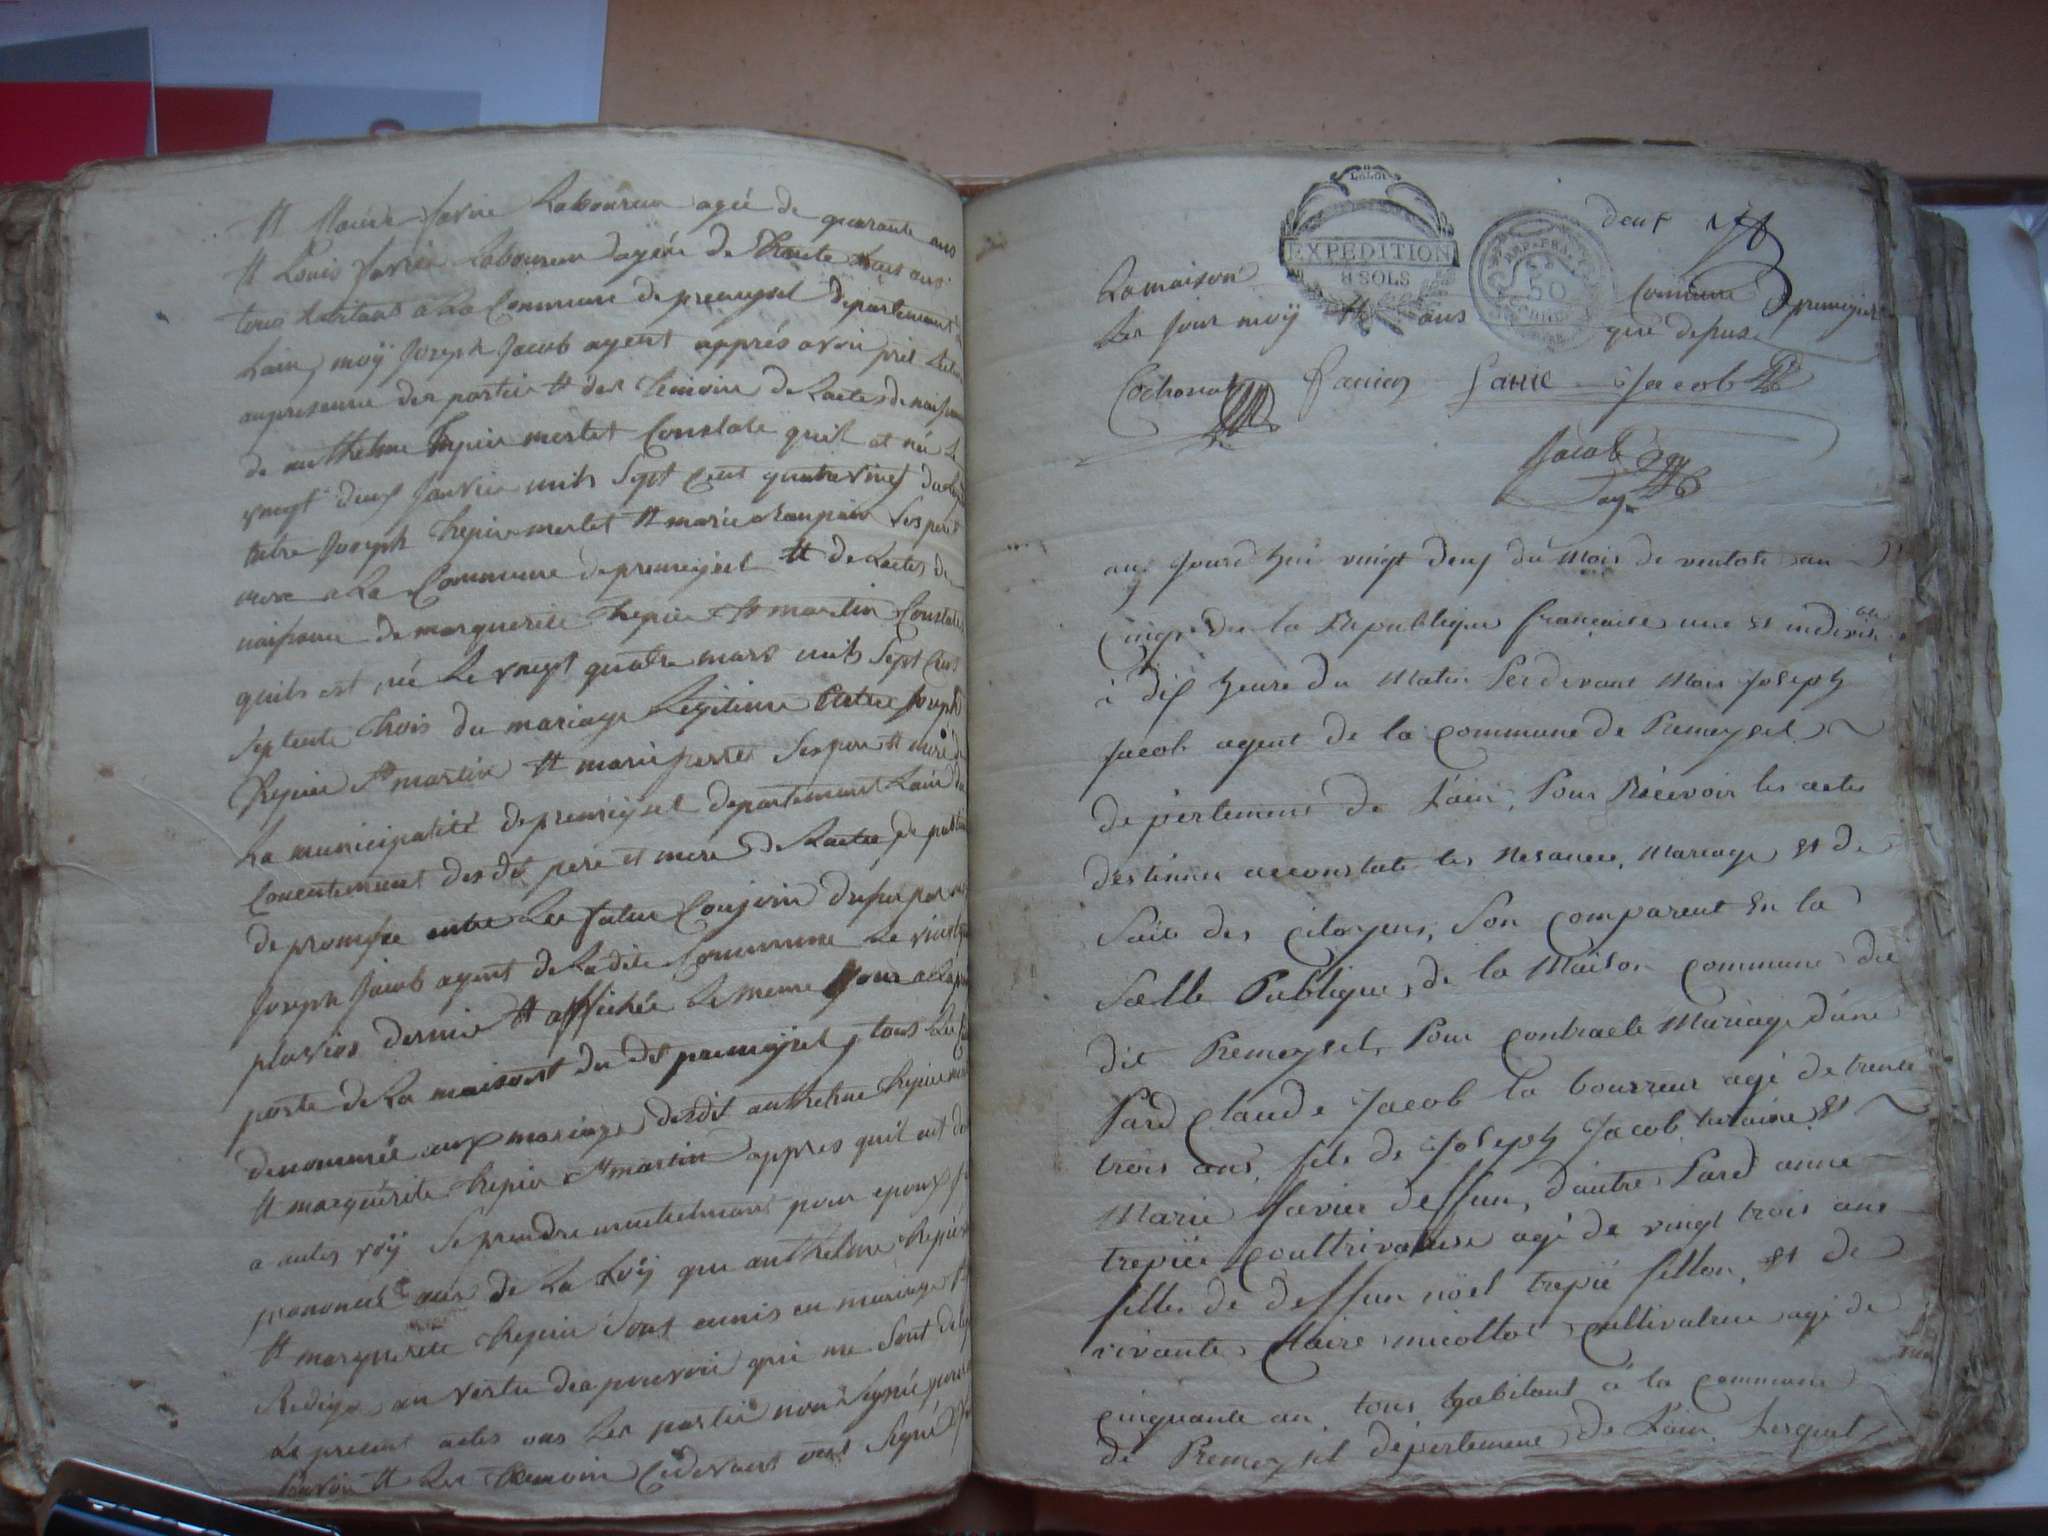 tt Savier Laboureur agée de quarante ans
tt Louis Savier Laboureur agée de
tous habitant a La Commune de premeysel departement
Lain, moÿ Joseph Jacob agent apprés avoir
en presence der partie tt der temoin de Lactes de
de anthelme trepier merlet Constate quil et née Le
vingt deux Janvier mils Sept Cent quatre vingt du
Joseph trepier merlet tt marie Ses pere
mere a La Commune de premeysel tt de Lactes de
naissance de marguerite trepier St martin Constate
quils est née Le vingt quatre mars mils Sept Cent
Septente trois du mariage Legitime Entre Joseph
trepier St martin tt marie perret Ses pere tt mere
La municipalité de premeysel departement Lain
Consentement desdit pere et mere de Lactes de
de promesse entre Les futur Conjoin
Joseph Jacob agent de Ladite Commune Le
pluvios dernier tt affichée Le meme Jour a La
porte de La maison du dit premeysel, tous Les
denommée aux mariage desdit anthelme trepier
tt marguerite trepier St martin appres quil ont
a autes voÿ Se prendre mutuelment pour epoux
prononcé au de La Loÿ que anthelme trepier
tt marguerite trepier Sont unis en mariage
Redigé en vertu des pouvoir qui me Sont
Le present actes Les partie non Signée pour
Savoir tt Les temoin Cidevant ont Signé
LA LOI
EXPEDITION
8 SOLS
REP. FRA.
50
deux
La maison Commune de premeysel
Les Jour moÿ tt ans que depuse
Cochonat Savier Savier Jacob
Jacob
ag
au Jourd hui vingt deux du Mois de ventose an
Cinq de la Republique françaises une et indivisi
ble
à dix heure du Matin Pardevant Mois Joseph
Jacob agent de la commune de Premeysel
departement de Lain, Pour Recevoir les actes
destinée acconstate les Nesance, Mariage et de
Saits des citoyens, Son comparent En la
Salle Publique, de la Maison commune du
dit Premeysel, Pour contracté Mariage d'une
Pard Claude Jacob la bourreur agé de trente
trois ans fils de Joseph Jacob et
Marie Savier deffun, d'autre Pard anne
trepier couttrivatrise agé de vingt trois ans
filles de deffun noël trepié fillon, et de
vivante Claire micollos cultivatrise agé de
cinquante an, tous habitant à la commune
de Premeysel departement de Lain, Lesquel